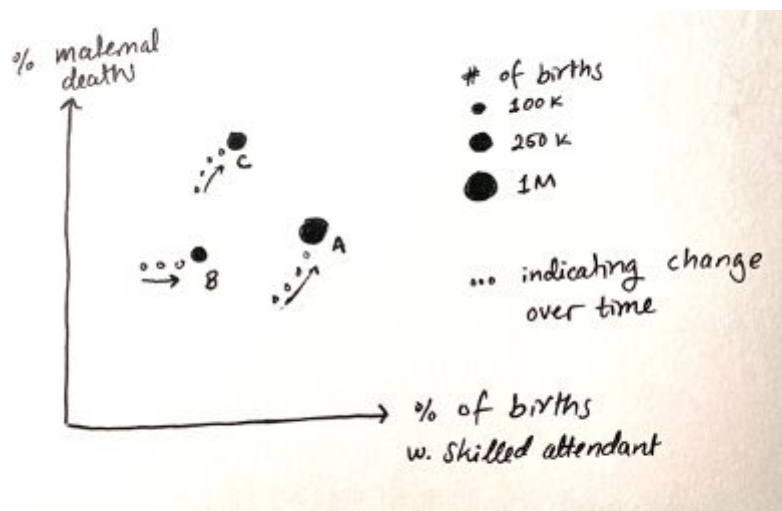 % maternal
deaths
# of births
100K
250K
1M
C
A
B
... indicating change
over time
% of births
w. skilled attendant